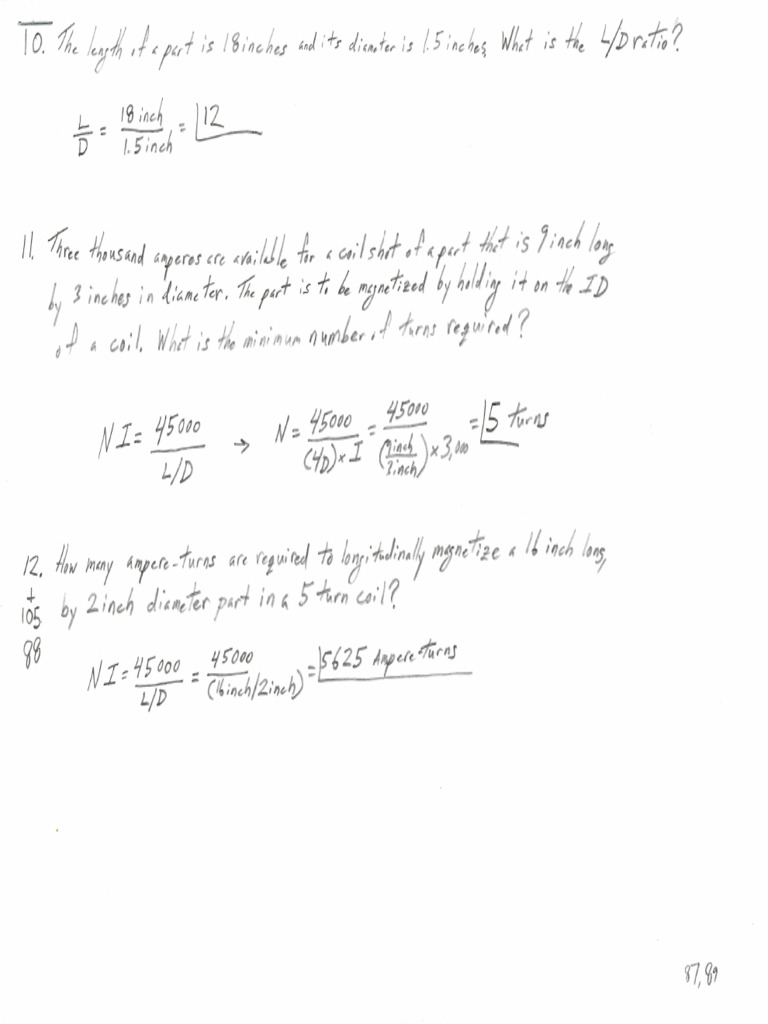 10. The length of a part is 18 inches and its diameter is 1.5 inches. What is the L/D ratio?
L/D = 18 inch/1.5 inch = 12
11. Three thousand amperes are available for a coil shot of a part that is 9 inch long
by 3 inches in diameter. The part is to be magnetized by holding it on the ID
of a coil. What is the minimum number of turns required?
NI = 45000/L/D → N = 45000/(L/D) × I = 45000/(9 inch/3 inch) × 3,000 = 5 turns
12. How many ampere-turns are required to longitudinally magnetize a 16 inch long,
+
105 by 2 inch diameter part in a 5 turn coil?
88
NI = 45000/L/D = 45000/(16 inch/2 inch) = 5625 Ampere-turns
87,89